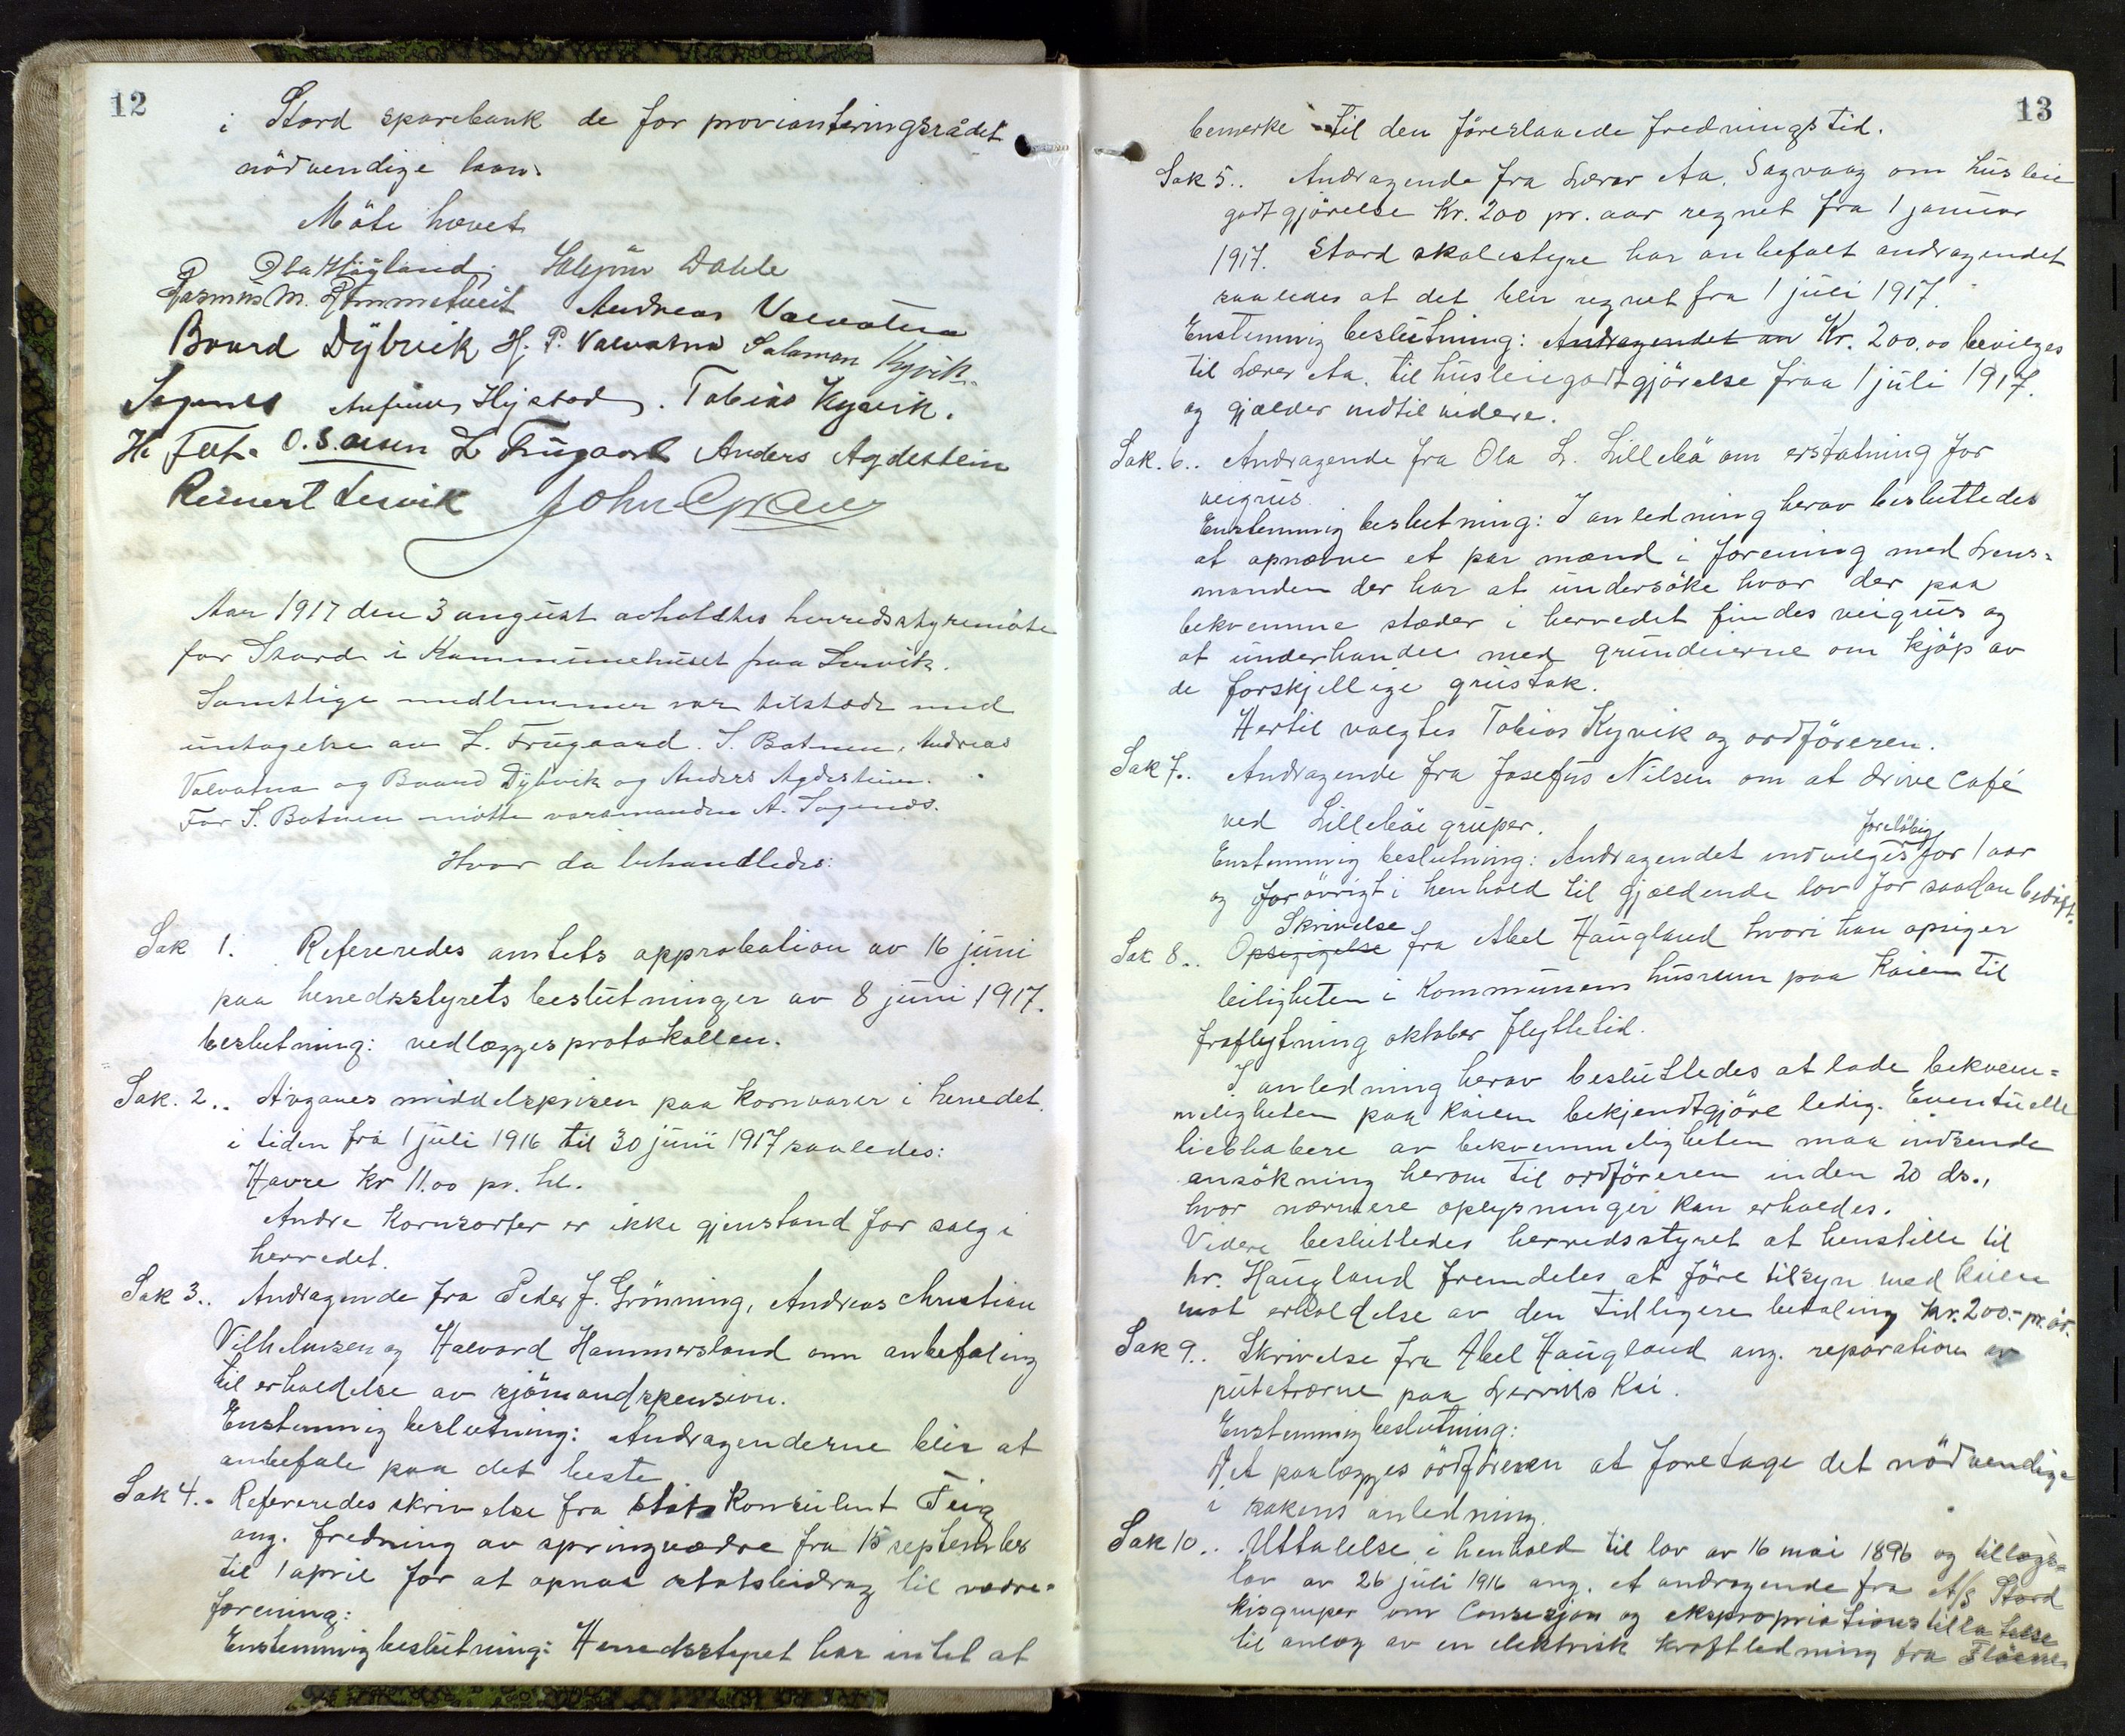 12
i Stord sparebank de for provianteringsrådet
nödvendige laan.
Möte hævet
Ola Högland. Halgjön Dahle
Rasmus M. Rommetveit Andreas Valvatna
Baard Dÿbvik H. P. Valvatna Salamon Kyvik.
Sagenes Anfinn Hystad. Tobias Kyvik.
H. Tot. O. S. Olsen L Frugaard Anders Agdestein
Reinert Lervik John Gran
Aar 1917 den 3 august avholdtes herredsstyremöte
for Stord i Kommunehuset paa Lervik.
Samtlige medlemmer var tilstede med
untagelse av L. Frugaard. S. Batnen, Andreas
Valvatna og Baard Dÿbvik og Anders Agdestein.
For S. Batnen mötte varamanden A. Sagenes.
Hvor da behandledes:
Sak 1. Refereredes amtets approbation av 16 juni
paa herredsstyrets beslutninger av 8 juni 1917.
beslutning: vedlægges protokollen.
Sak. 2.. Avgaves middelsprisen paa kornvarer i herredet.
i tiden fra 1 juli 1916 til 30 juni 1917 saaledes:
Havre kr 11.00 pr. hl.
Andre kornsorter er ikke gjenstand for salg i
herredet.
Sak 3.. Andragende fra Peder J. Grönning, Andreas Christian
Vilhelmsen og Halvard Hammersland om anbefaling
til erholdelse av sjömandspension.
Enstemmig beslutning: Andragenderne blir at
anbefale paa det beste
Sak 4.. Refereredes skrivelse fra statskonsulent Teig
ang. fredning av springvædre fra 15 september
til 1 april for at opnaa statsbidrag til vædre-
forening:
Enstemmig beslutning: Herredsstyret har intet at
13
bemerke til den föreslaaede fredningstid.
Sak 5.. Andragende fra Lærer Aa. Sagvaag om husleie
godtgjörelse Kr. 200 pr. aar regnet fra 1 januar
1917. Stord skolestyre har anbefalt andragendet
saaledes at det blir regnet fra 1 juli 1917.
Enstemmig beslutning: Andragendet an Kr. 200.00 bevilges
til Lærer Aa. til husleiegodtgjörelse fraa 1 juli 1917.
og gjælder indtil videre.
Sak. 6.. Andragende fra Ola L. Lillebö om erstatning for
veigrus.
Enstemmig beslutning: I anledning herav besluttedes
at opnævne et par mænd i forening med Lens-
manden der har at undersöke hvor der paa
bekvemme stæder i herredet findes veigrus og
at underhandle med grundeierne om kjöp av
de forskjellige grustak.
Hertil valgtes Tobias Kyvik og ordföreren.
Sak 7.. Andragende fra Josefus Nilsen om at drive café
ved Lillebö gruper.
forelöbig
Enstemmig beslutning: Andragendet indvilges for 1 aar
og forövrigt i henhold til gjældende lov for saadan bedrift.
Skrivelse
Sak 8.. Opsigigelse fra Abel Haugland hvori han opsiger
leiligheten i Kommunens husrum paa Kaien til
fraflytning oktober flyttetid.
I anledning herav besluttedes at lade bekvem-
meligheten paa kaien bekjendtgjöre ledig. Eventuelle
liebhabere av bekvemmeligheten maa indsende
ansökning herom til ordföreren inden 20 ds.,
hvor nærmere oplysninger kan erholdes.
Videre besluttedes herredsstyret at henstille til
hr. Haugland fremdeles at före tilsyn med kaien
mot erholdelse av den tidligere betaling kr. 200.- pr. år.
Sak 9.. Skrivelse fra Abel Haugland ang. reparation av
putetrærne paa Lerviks Kai.
Enstemmig beslutning:
Det paalægges ordföreren at foretage det nödvendige
i sakens anledning.
Sak 10.. Uttalelse i henhold til lov av 16 mai 1896 og tillægs-
lov av 26 juli 1916 ang. et andragende fra A/S Stord
kisgruper om Consesjon og ekspropriationstillatelse
til anlæg av en elektrisk kraftledning fra